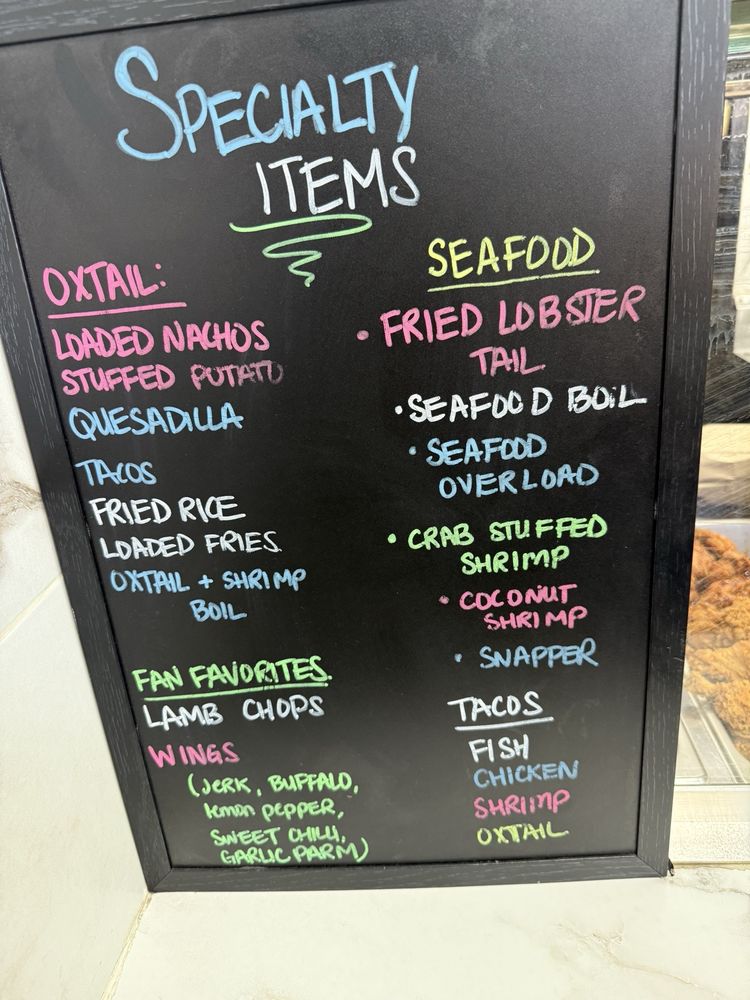 SPECIALTY
ITEMS
OXTAIL:
LOADED NACHOS
STUFFED POTATO
QUESADILLA
TACOS
FRIED RICE
LOADED FRIES
OXTAIL + SHRIMP
BOIL
FAN FAVORITES.
LAMB CHOPS
WINGS
(JERK, BUFFALO,
lemon pepper,
SWEET CHILLI,
GARLIC PARM)
SEAFOOD
• FRIED LOBSTER
TAIL
• SEAFOOD BOIL
• SEAFOOD
OVERLOAD
• CRAB STUFFED
SHRIMP
• COCONUT
SHRIMP
• SNAPPER
TACOS
FISH
CHICKEN
SHRIMP
OXTAIL